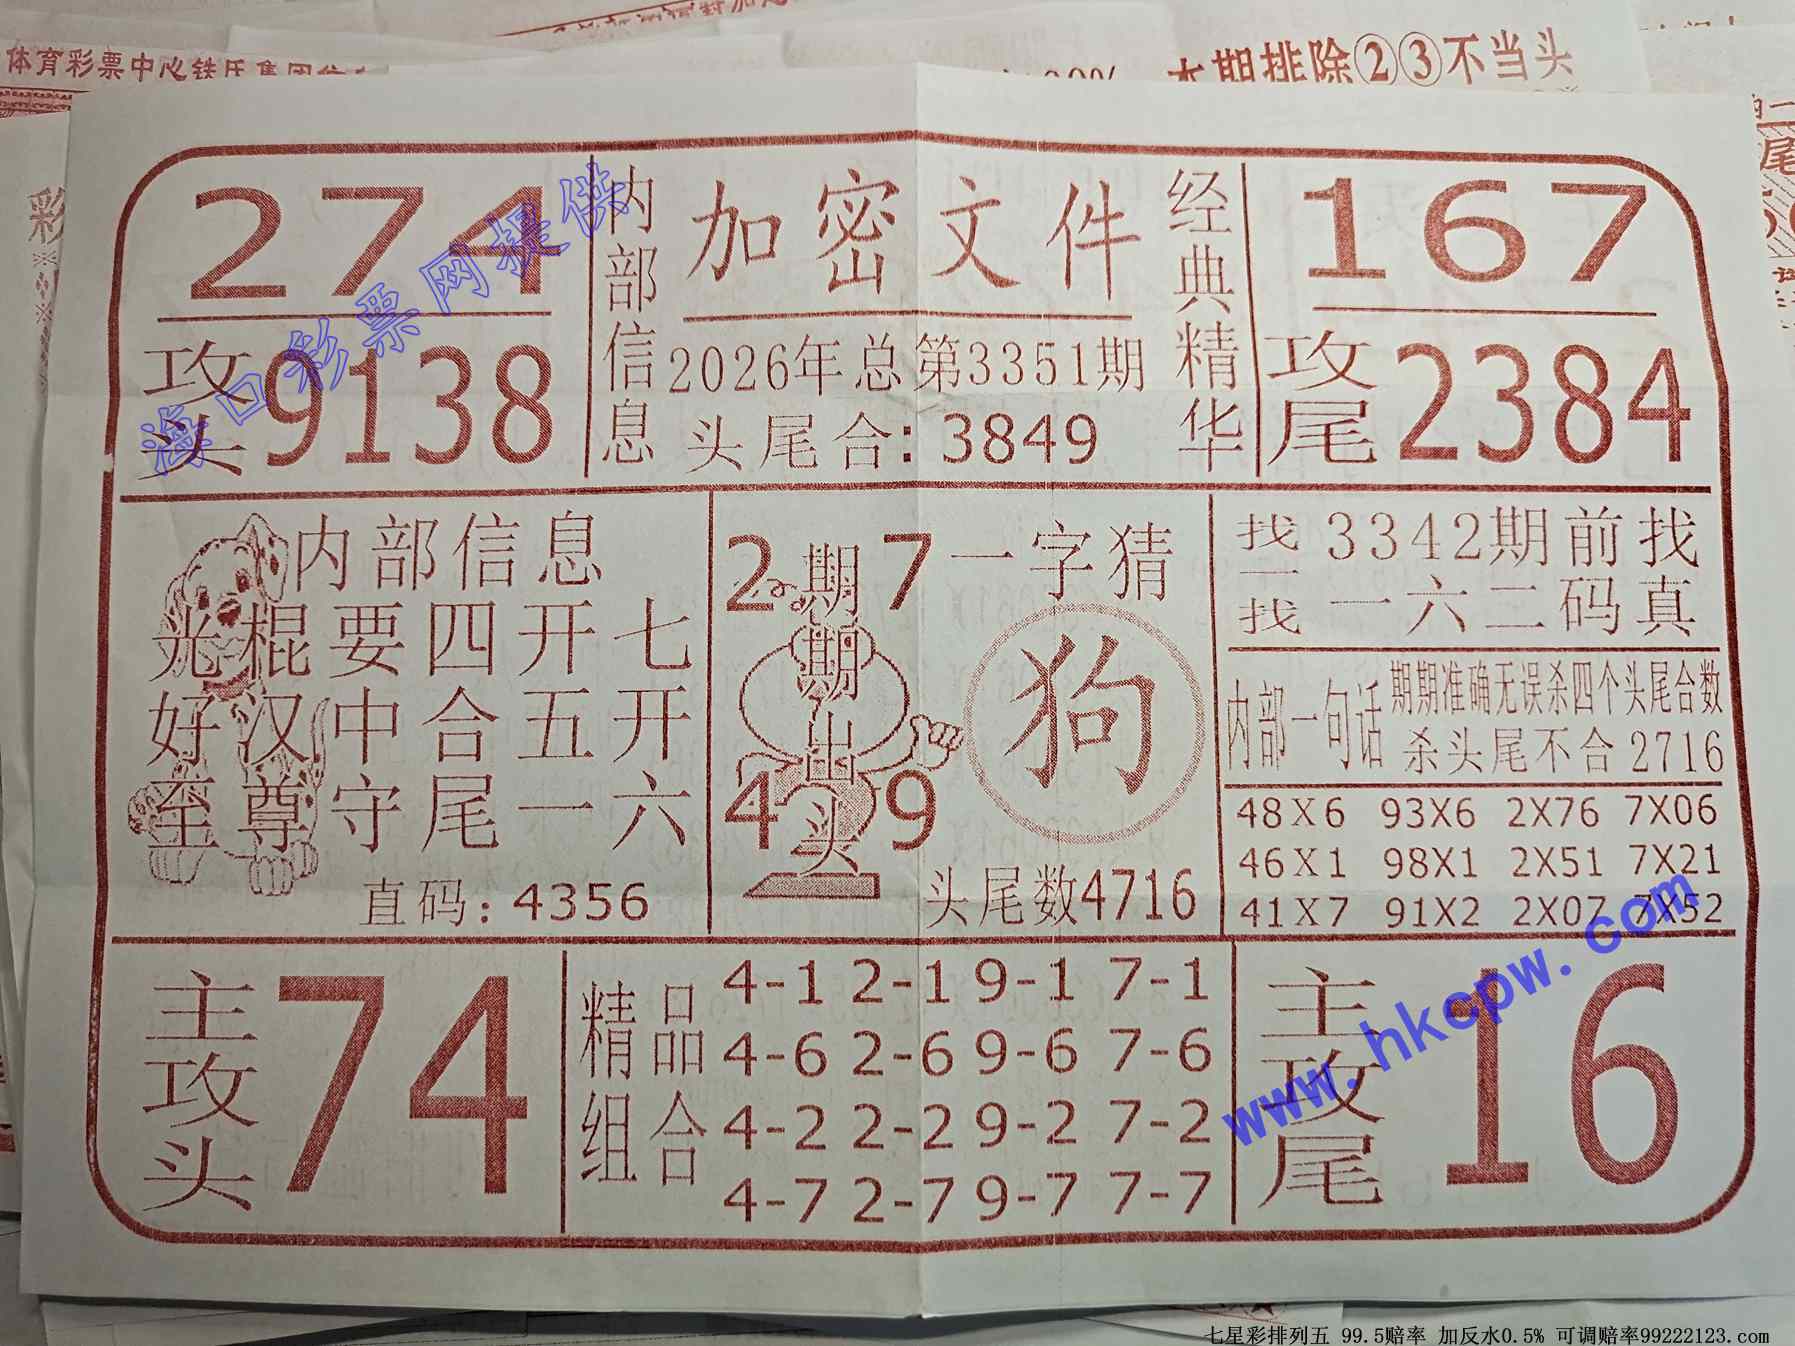 体育彩票中心铁氏集团
本期排除②③不当头
274
攻头9138
内部信息
加密文件
2026年总第3351期
头尾合:3849
经典精华
167
攻尾2384
内部信息
光棍要四开七
好汉中合五开
至尊守尾一六
直码:4356
2 7
4 9
期期出头
一字猜
狗
头尾数4716
找一找
3342期前找
一六二码真
内部一句话
期期准确无误杀四个头尾合数
杀头尾不合2716
48X6 93X6 2X76 7X06
46X1 98X1 2X51 7X21
41X7 91X2 2X07 7X52
主攻头
74
精品组合
4-1 2-1 9-1 7-1
4-6 2-6 9-6 7-6
4-2 2-2 9-2 7-2
4-7 2-7 9-7 7-7
主攻尾
16
海口彩票网提供
www.hkcpw.com
七星彩排列五 99.5赔率 加反水0.5% 可调赔率99222123.com